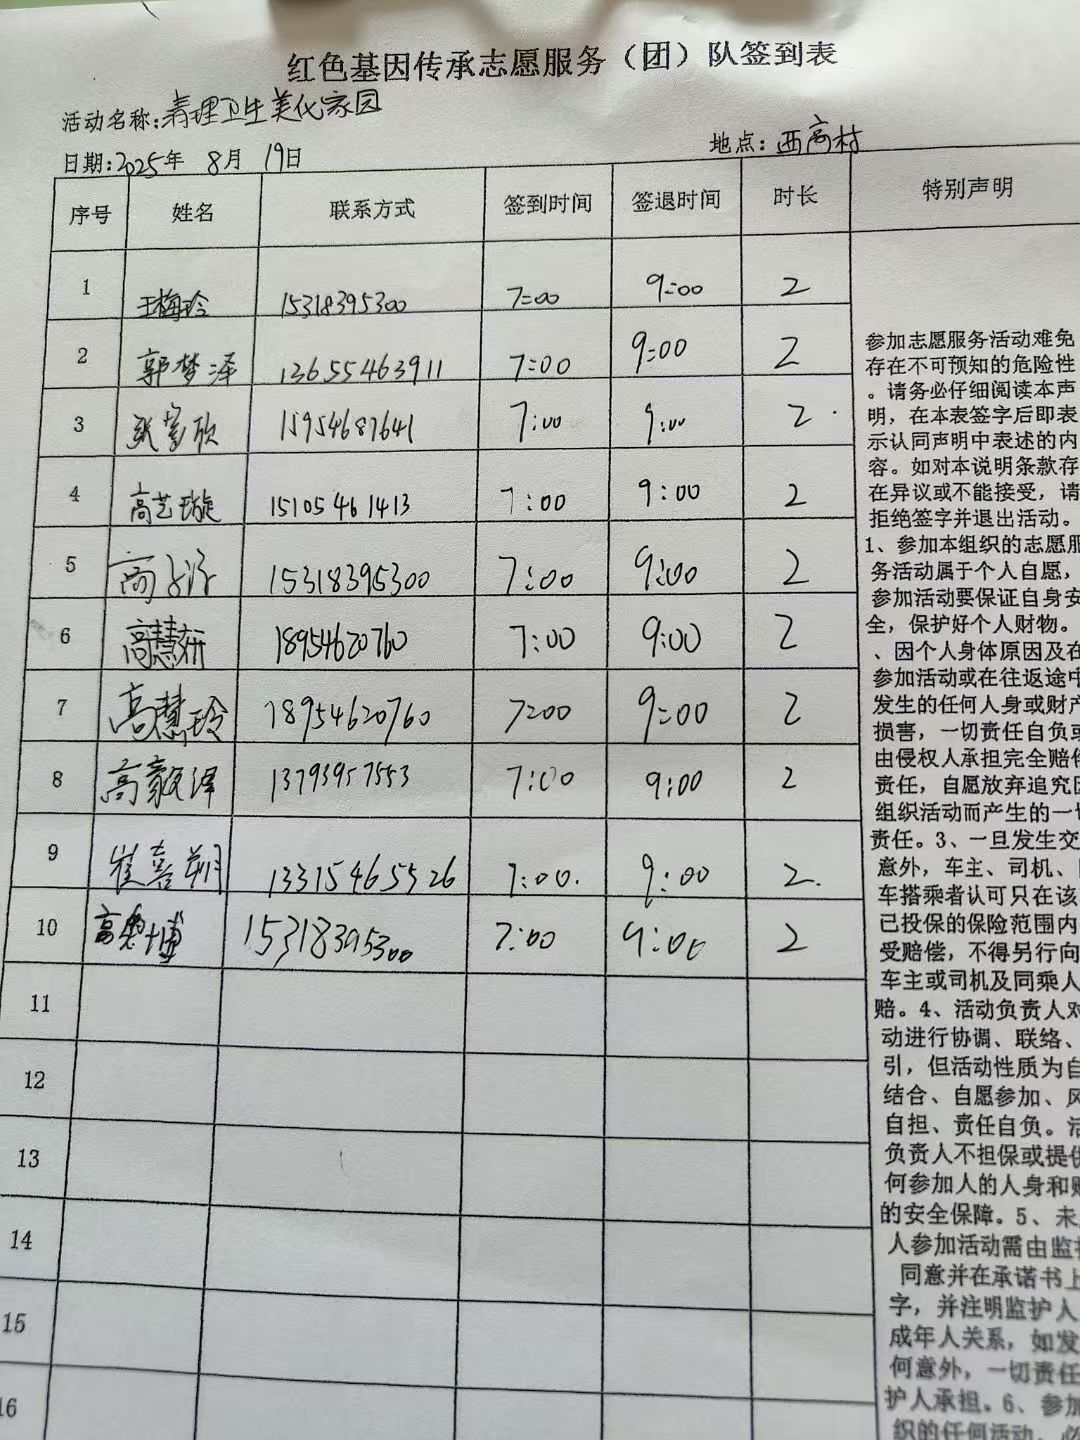 红色基因传承志愿服务（团）队签到表
活动名称:清理卫生美化家园
日期:2025年 8月 19日 地点:西高村
序号 姓名 联系方式 签到时间 签退时间 时长 特别声明
1 王梅玲 15318395300 7:00 9:00 2
2 郭梦泽 13655463911 7:00 9:00 2
3 15954687641 7:00 9:00 2
4 高艺璇 15105461413 7:00 9:00 2
5 高 15318395300 7:00 9:00 2
6 高慧妍 18954620760 7:00 9:00 2
7 高慧玲 18954620760 7:00 9:00 2
8 高 泽 13793957553 7:00 9:00 2
9 崔 13315465526 7:00. 9:00 2.
10 高 博 15318395300 7:00 9:00 2
11
12
13
14
15
16
参加志愿服务活动难免
存在不可预知的危险性
。请务必仔细阅读本声
明，在本表签字后即表
示认同声明中表述的内
容。如对本说明条款存
在异议或不能接受，请
拒绝签字并退出活动。
1、参加本组织的志愿服
务活动属于个人自愿，
参加活动要保证自身安
全，保护好个人财物。
、因个人身体原因及在
参加活动或在往返途中
发生的任何人身或财产
损害，一切责任自负或
由侵权人承担完全赔偿
责任，自愿放弃追究因
组织活动而产生的一切
责任。3、一旦发生交
意外，车主、司机、
车搭乘者认可只在该
已投保的保险范围内
受赔偿，不得另行向
车主或司机及同乘人
赔。4、活动负责人对
动进行协调、联络、
引，但活动性质为自
结合、自愿参加、风
自担、责任自负。活
负责人不担保或提供
何参加人的人身和财
的安全保障。5、未
人参加活动需由监护
同意并在承诺书上
字，并注明监护人
成年人关系，如发
何意外，一切责任
护人承担。6、参加
织的任何活动，必